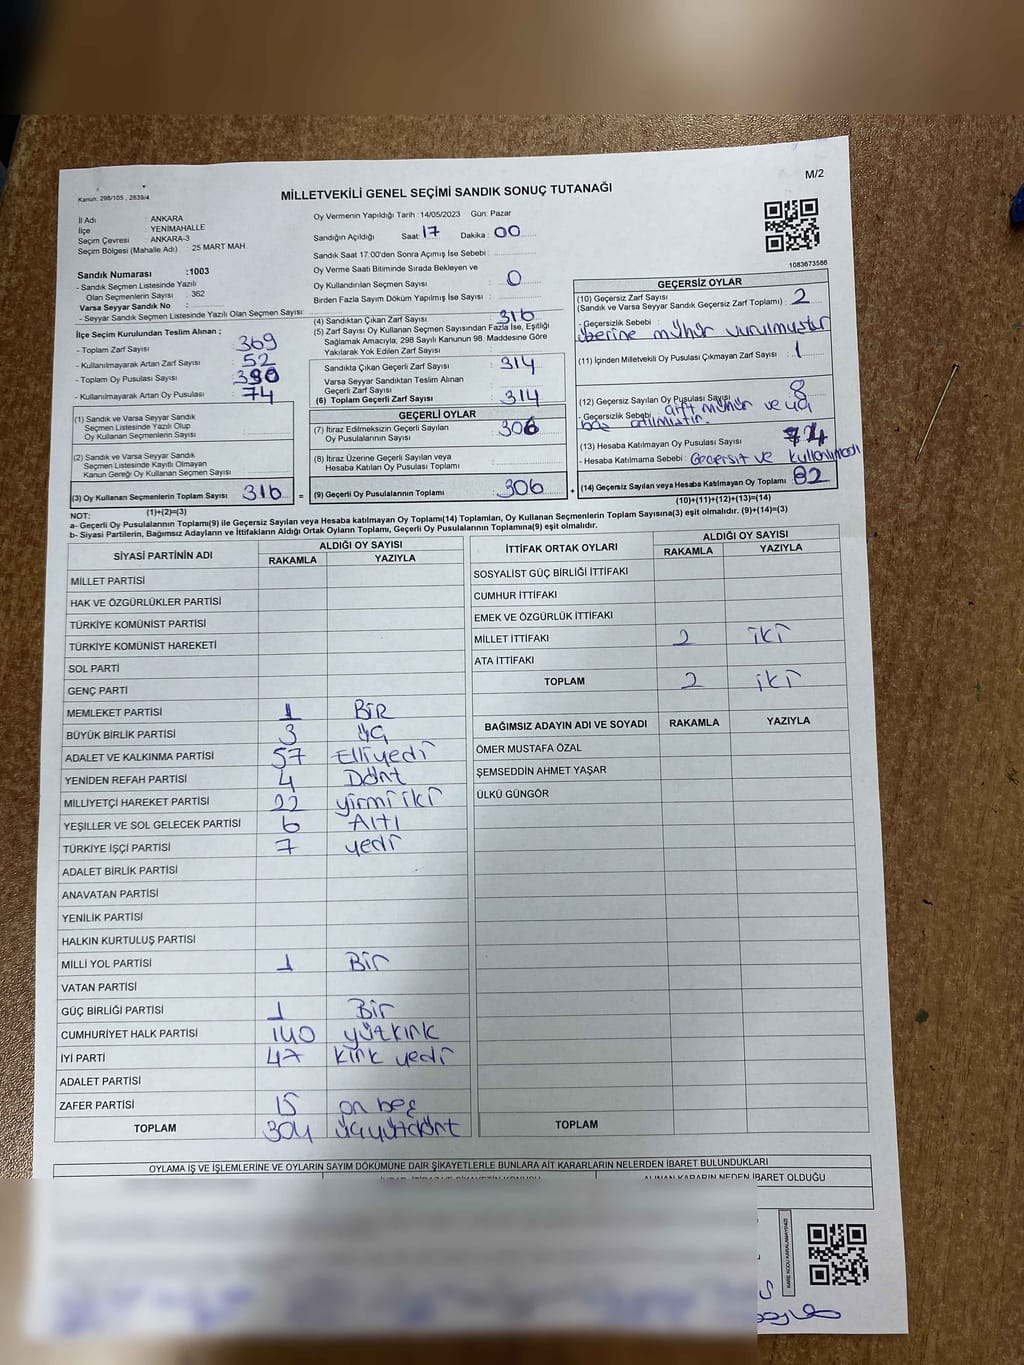 M/2
Kanun: 298/105 , 2839/4
MİLLETVEKİLİ GENEL SEÇİMİ SANDIK SONUÇ TUTANAĞI
İl Adı : ANKARA
İlçe : YENİMAHALLE
Seçim Çevresi : ANKARA-3
Seçim Bölgesi (Mahalle Adı) : 25 MART MAH.
Sandık Numarası :1003
- Sandık Seçmen Listesinde Yazılı
Olan Seçmenlerin Sayısı : 362
Varsa Seyyar Sandık No :
- Seyyar Sandık Seçmen Listesinde Yazılı Olan Seçmen Sayısı:
İlçe Seçim Kurulundan Teslim Alınan ;
- Toplam Zarf Sayısı 369
- Kullanılmayarak Artan Zarf Sayısı 52
- Toplam Oy Pusulası Sayısı 390
- Kullanılmayarak Artan Oy Pusulası 74
(1) Sandık ve Varsa Seyyar Sandık
Seçmen Listesinde Yazılı Olup
Oy Kullanan Seçmenlerin Sayısı
(2) Sandık ve Varsa Seyyar Sandık
Seçmen Listesinde Kayıtlı Olmayan
Kanun Gereği Oy Kullanan Seçmen Sayısı
(3) Oy Kullanan Seçmenlerin Toplam Sayısı 316
(1)+(2)=(3)
Oy Vermenin Yapıldığı Tarih : 14/05/2023 Gün: Pazar
Sandığın Açıldığı Saat: 17 Dakika : 00
Sandık Saat 17:00'den Sonra Açımış İse Sebebi :
Oy Verme Saati Bitiminde Sırada Bekleyen ve
Oy Kullandırılan Seçmen Sayısı : 0
Birden Fazla Sayım Döküm Yapılmış İse Sayısı :
(4) Sandıktan Çıkan Zarf Sayısı : 316
(5) Zarf Sayısı Oy Kullanan Seçmen Sayısından Fazla İse, Eşitliği
Sağlamak Amacıyla, 298 Sayılı Kanunun 98. Maddesine Göre
Yakılarak Yok Edilen Zarf Sayısı :
Sandıkta Çıkan Geçerli Zarf Sayısı : 314
Varsa Seyyar Sandıktan Teslim Alınan
Geçerli Zarf Sayısı :
(6) Toplam Geçerli Zarf Sayısı : 314
GEÇERLİ OYLAR
(7) İtiraz Edilmeksizin Geçerli Sayılan
Oy Pusulalarının Sayısı : 306
(8) İtiraz Üzerine Geçerli Sayılan veya
Hesaba Katılan Oy Pusulası Toplamı :
= (9) Geçerli Oy Pusulalarının Toplamı : 306 +
1083673586
GEÇERSİZ OYLAR
(10) Geçersiz Zarf Sayısı
(Sandık ve Varsa Seyyar Sandık Geçersiz Zarf Toplamı) : 2
- Geçersizlik Sebebi :
üzerine mühür vurulmuştur
(11) İçinden Milletvekili Oy Pusulası Çıkmayan Zarf Sayısı : 1
(12) Geçersiz Sayılan Oy Pusulası Sayısı : 8
- Geçersizlik Sebebi : çift mühür veya
boş atılmıştır.
(13) Hesaba Katılmayan Oy Pusulası Sayısı : 74
- Hesaba Katılmama Sebebi : Geçersiz ve kullanılmadı
(14) Geçersiz Sayılan veya Hesaba Katılmayan Oy Toplamı 82
(10)+(11)+(12)+(13)=(14)
NOT:
a- Geçerli Oy Pusulalarının Toplamı(9) ile Geçersiz Sayılan veya Hesaba katılmayan Oy Toplamı(14) Toplamları, Oy Kullanan Seçmenlerin Toplam Sayısına(3) eşit olmalıdır. (9)+(14)=(3)
b- Siyasi Partilerin, Bağımsız Adayların ve İttifakların Aldığı Ortak Oyların Toplamı, Geçerli Oy Pusulalarının Toplamına(9) eşit olmalıdır.
SİYASİ PARTİNİN ADI ALDIĞI OY SAYISI
RAKAMLA YAZIYLA
MİLLET PARTİSİ
HAK VE ÖZGÜRLÜKLER PARTİSİ
TÜRKİYE KOMÜNİST PARTİSİ
TÜRKİYE KOMÜNİST HAREKETİ
SOL PARTİ
GENÇ PARTİ
MEMLEKET PARTİSİ 1 BİR
BÜYÜK BİRLİK PARTİSİ 3 üç
ADALET VE KALKINMA PARTİSİ 57 Elliyedi
YENİDEN REFAH PARTİSİ 4 Dört
MİLLİYETÇİ HAREKET PARTİSİ 22 yirmi iki
YEŞİLLER VE SOL GELECEK PARTİSİ 6 Altı
TÜRKİYE İŞÇİ PARTİSİ 7 yedi
ADALET BİRLİK PARTİSİ
ANAVATAN PARTİSİ
YENİLİK PARTİSİ
HALKIN KURTULUŞ PARTİSİ
MİLLİ YOL PARTİSİ 1 Bir
VATAN PARTİSİ
GÜÇ BİRLİĞİ PARTİSİ 1 Bir
CUMHURİYET HALK PARTİSİ 140 yüzkırk
İYİ PARTİ 47 kırk yedi
ADALET PARTİSİ
ZAFER PARTİSİ 15 on beş
TOPLAM 304 üçyüzdört
İTTİFAK ORTAK OYLARI ALDIĞI OY SAYISI
RAKAMLA YAZIYLA
SOSYALİST GÜÇ BİRLİĞİ İTTİFAKI
CUMHUR İTTİFAKI
EMEK VE ÖZGÜRLÜK İTTİFAKI
MİLLET İTTİFAKI 2 iki
ATA İTTİFAKI
TOPLAM 2 iki
BAĞIMSIZ ADAYIN ADI VE SOYADI RAKAMLA YAZIYLA
ÖMER MUSTAFA ÖZAL
ŞEMSEDDİN AHMET YAŞAR
ÜLKÜ GÜNGÖR
TOPLAM
OYLAMA İŞ VE İŞLEMLERİNE VE OYLARIN SAYIM DÖKÜMÜNE DAİR ŞİKAYETLERLE BUNLARA AİT KARARLARIN NELERDEN İBARET BULUNDUKLARI
ALINAN KARARIN NEDEN İBARET OLDUĞU
KARE KODU KARALAMAYINIZ!